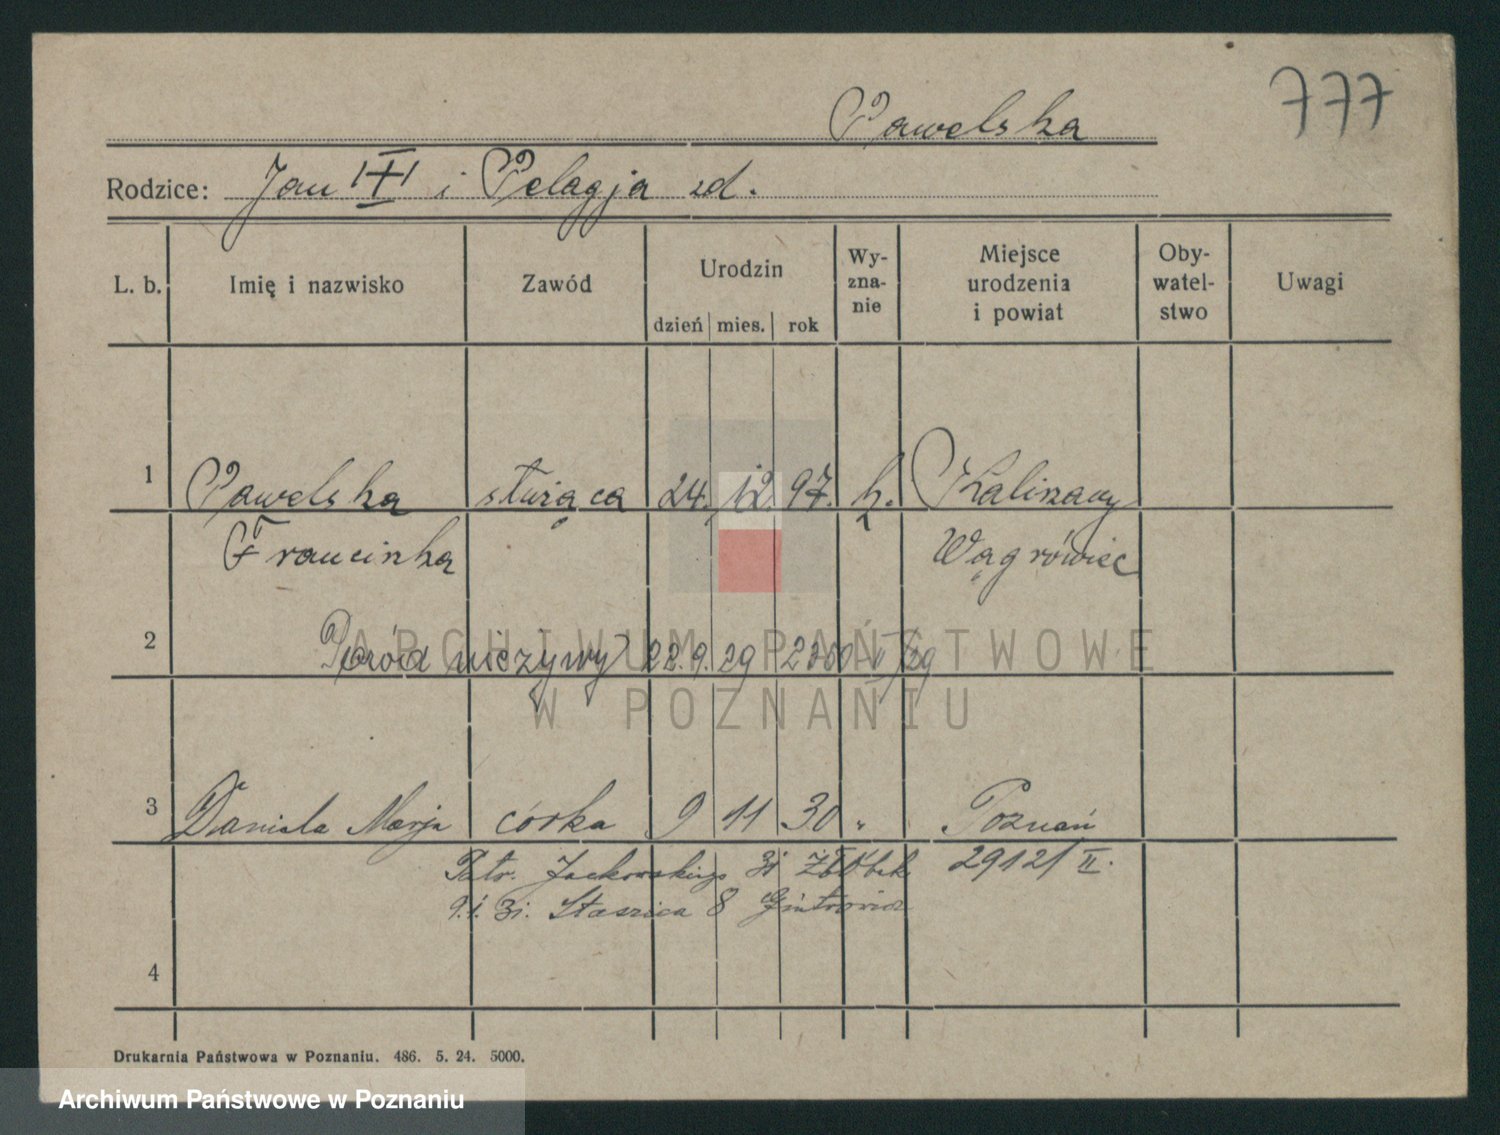 777
Pawelska
Rodzice: Jan III i Pelagja zd.
L. b. Imię i nazwisko Zawód Urodzin dzień mies. rok Wy-zna-nie Miejsce urodzenia i powiat Oby-watel-stwo Uwagi
1 Pawelska służąca 24. 12. 97. k. Kaliszany
Franciska Wągrówiec
2 Poród nieżywy 22.9.29
ARCHIWUM PAŃSTWOWE
W POZNANIU
3 Daniela Marja córka 9 11 30 " Poznań
Patr. Jackowskiego 31 2912/II.
31. Staszica 8
4
Drukarnia Państwowa w Poznaniu. 486. 5. 24. 5000.
Archiwum Państwowe w Poznaniu